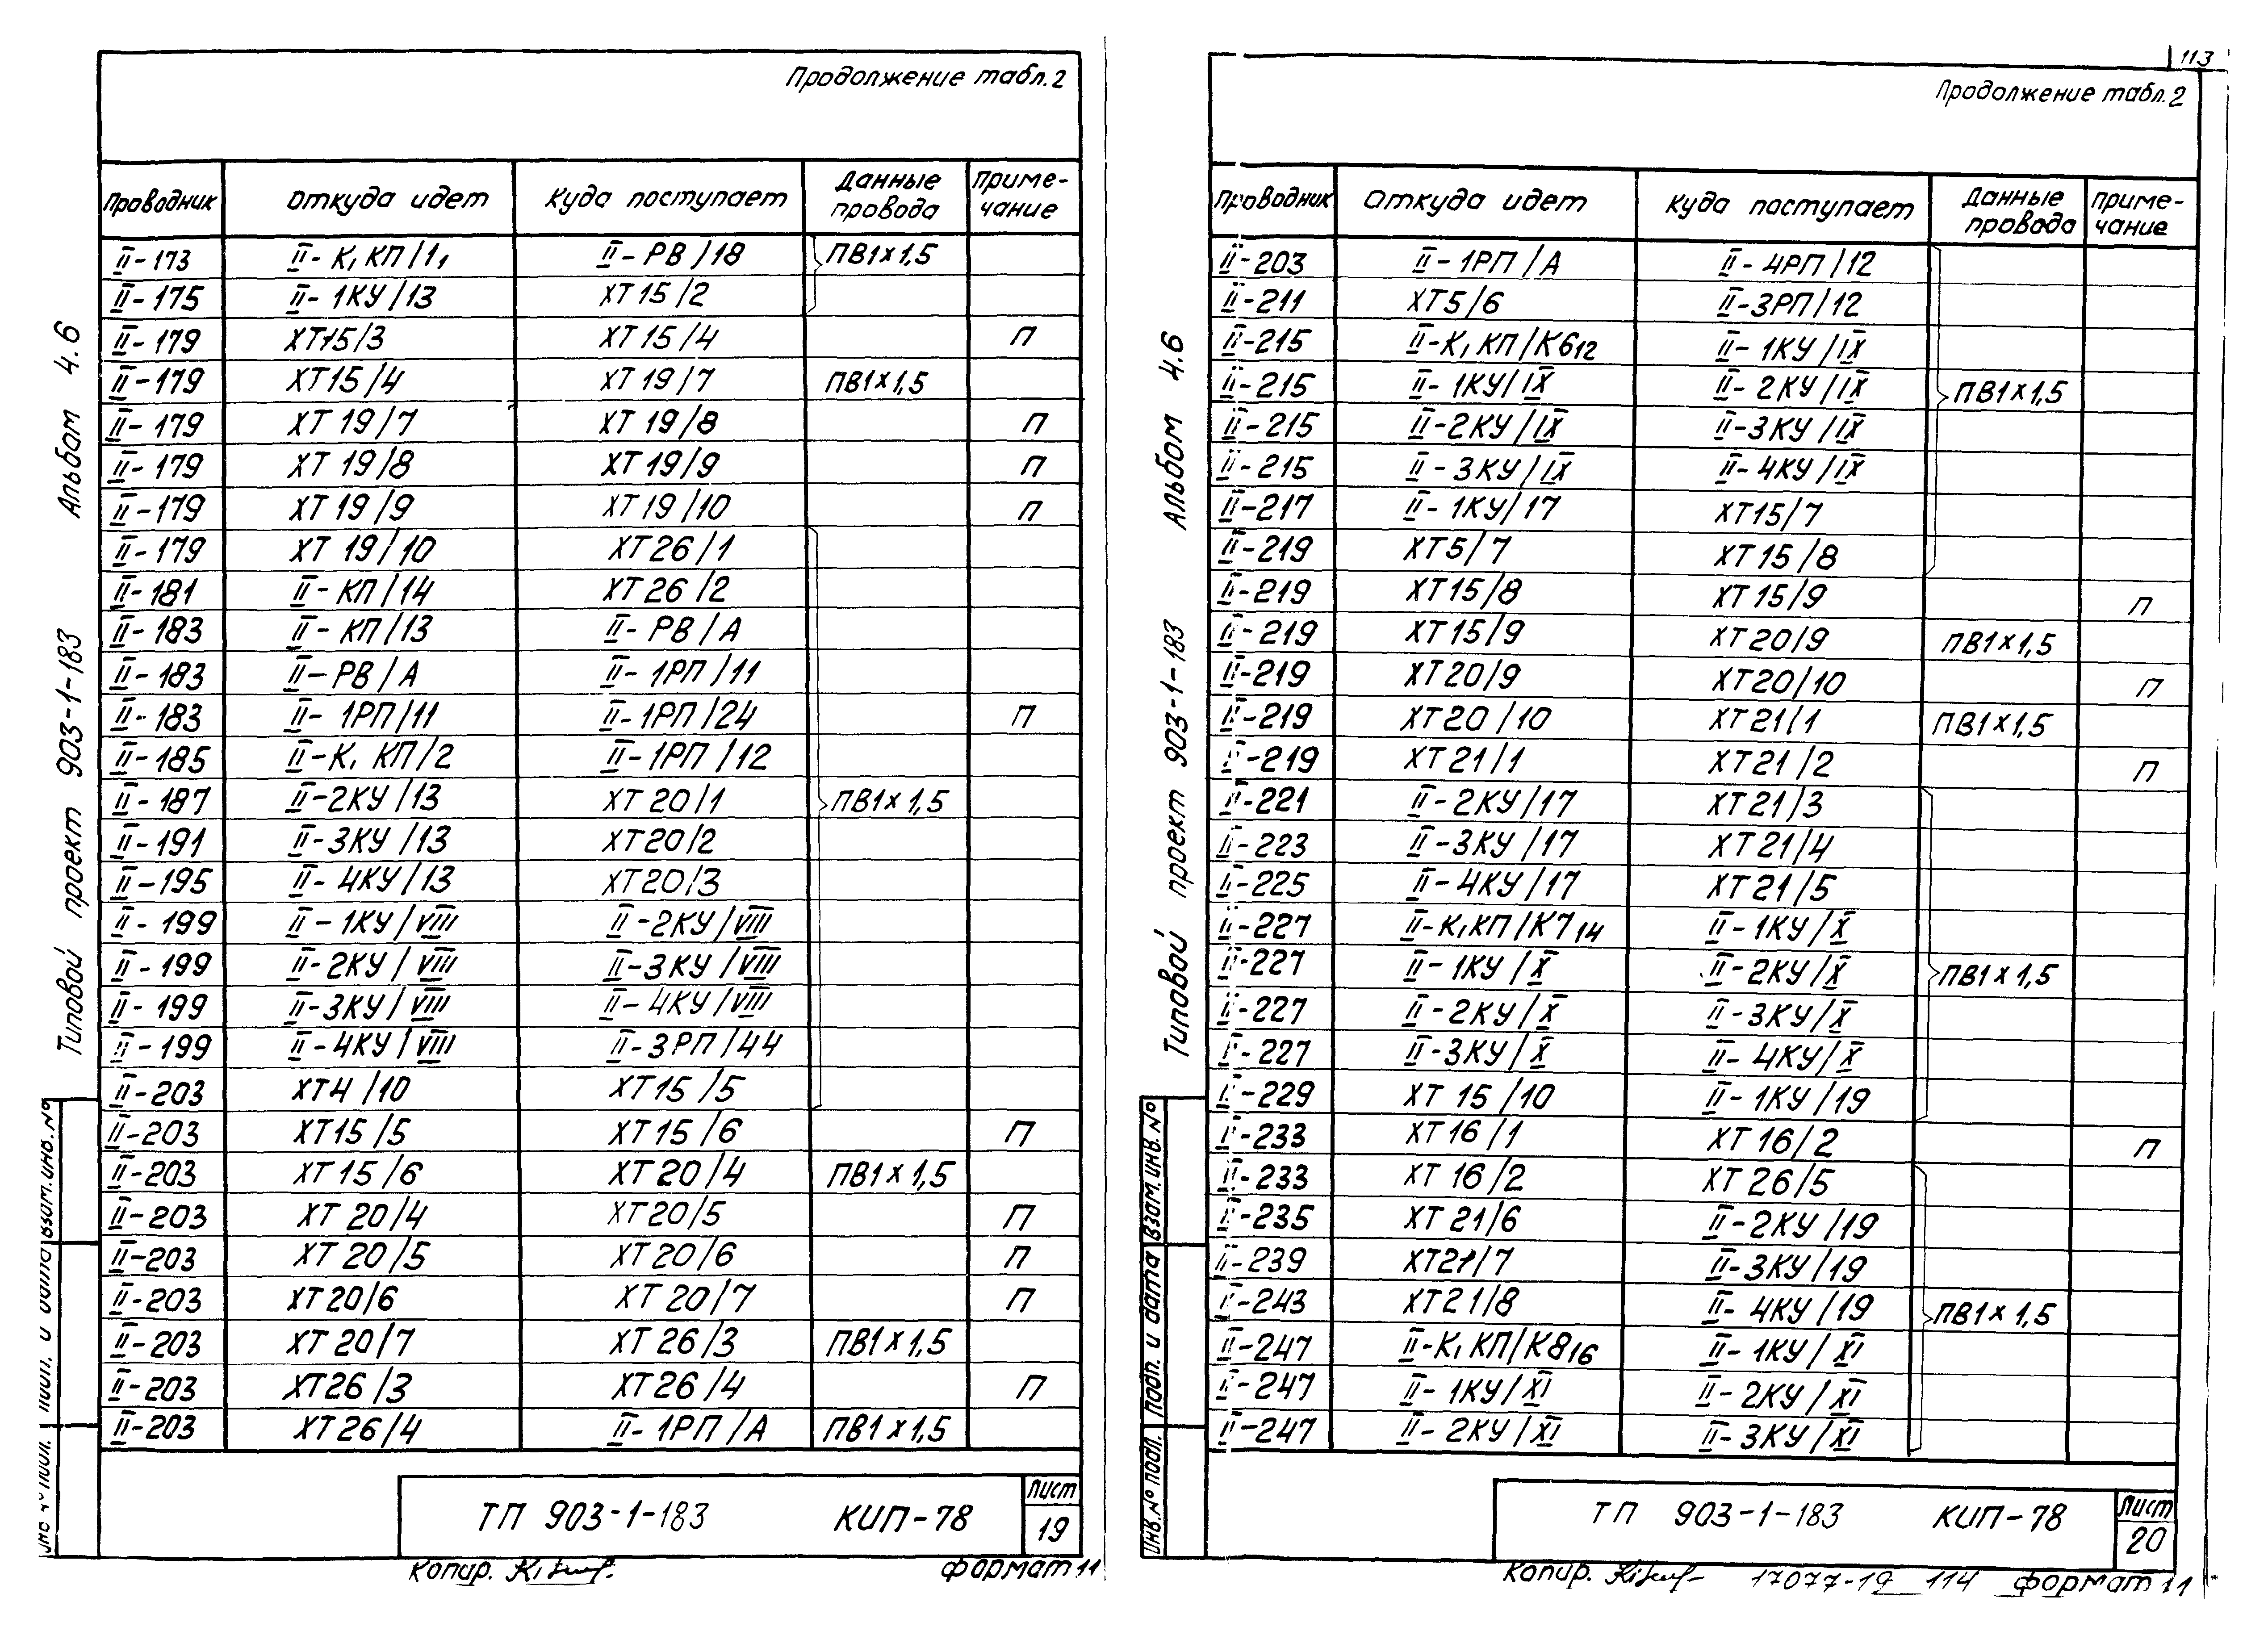 Продолжение табл.2
Проводник Откуда идет Куда поступает Данные провода Примечание
II-173 II-К₁ КП/1₁ II-РВ/18 ПВ1×1,5
II-175 II-1КУ/13 ХТ15/2
II-179 ХТ15/3 ХТ15/4 П
II-179 ХТ15/4 ХТ19/7 ПВ1×1,5
II-179 ХТ19/7 ХТ19/8 П
II-179 ХТ19/8 ХТ19/9 П
II-179 ХТ19/9 ХТ19/10 П
II-179 ХТ19/10 ХТ26/1
II-181 II-КП/14 ХТ26/2
II-183 II-КП/13 II-РВ/А
II-183 II-РВ/А II-1РП/11
II-183 II-1РП/11 II-1РП/24 П
II-185 II-К₁ КП/2 II-1РП/12
II-187 II-2КУ/13 ХТ20/1 ПВ1×1,5
II-191 II-3КУ/13 ХТ20/2
II-195 II-4КУ/13 ХТ20/3
II-199 II-1КУ/VIII II-2КУ/VIII
II-199 II-2КУ/VIII II-3КУ/VIII
II-199 II-3КУ/VIII II-4КУ/VIII
II-199 II-4КУ/VIII II-3РП/44
II-203 ХТ4/10 ХТ15/5
II-203 ХТ15/5 ХТ15/6 П
II-203 ХТ15/6 ХТ20/4 ПВ1×1,5
II-203 ХТ20/4 ХТ20/5 П
II-203 ХТ20/5 ХТ20/6 П
II-203 ХТ20/6 ХТ20/7 П
II-203 ХТ20/7 ХТ26/3 ПВ1×1,5
II-203 ХТ26/3 ХТ26/4 П
II-203 ХТ26/4 II-1РП/А ПВ1×1,5
ТП 903-1-183 КИП-78
Лист
19
Копир.
Формат 11
Альбом 4.6
Типовой проект 903-1-183
Взам.инв.№
113
Продолжение табл.2
Проводник Откуда идет Куда поступает Данные провода Примечание
II-203 II-1РП/А II-4РП/12
II-211 ХТ5/6 II-3РП/12
II-215 II-К₁ КП/К6₁₂ II-1КУ/IX
II-215 II-1КУ/IX II-2КУ/IX ПВ1×1,5
II-215 II-2КУ/IX II-3КУ/IX
II-215 II-3КУ/IX II-4КУ/IX
II-217 II-1КУ/17 ХТ15/7
II-219 ХТ5/7 ХТ15/8
II-219 ХТ15/8 ХТ15/9 П
II-219 ХТ15/9 ХТ20/9 ПВ1×1,5
II-219 ХТ20/9 ХТ20/10 П
II-219 ХТ20/10 ХТ21/1 ПВ1×1,5
II-219 ХТ21/1 ХТ21/2 П
II-221 II-2КУ/17 ХТ21/3
II-223 II-3КУ/17 ХТ21/4
II-225 II-4КУ/17 ХТ21/5
II-227 II-К₁КП/К7₁₄ II-1КУ/X
II-227 II-1КУ/X II-2КУ/X ПВ1×1,5
II-227 II-2КУ/X II-3КУ/X
II-227 II-3КУ/X II-4КУ/X
II-229 ХТ15/10 II-1КУ/19
II-233 ХТ16/1 ХТ16/2 П
II-233 ХТ16/2 ХТ26/5
II-235 ХТ21/6 II-2КУ/19
II-239 ХТ21/7 II-3КУ/19
II-243 ХТ21/8 II-4КУ/19 ПВ1×1,5
II-247 II-К₁ КП/К8₁₆ II-1КУ/XI
II-247 II-1КУ/XI II-2КУ/XI
II-247 II-2КУ/XI II-3КУ/XI
ТП 903-1-183 КИП-78
Лист
20
Копир.
17077-19 114 Формат 11
Альбом 4.6
Типовой проект 903-1-183
Взам.инв.№
Подп. и дата
Инв.№ подл.